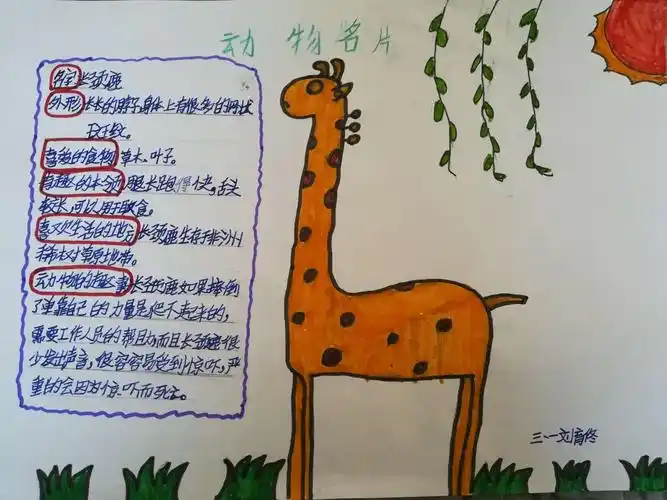 动物名片
名字 长颈鹿
外形 长长的脖子身体上有很多的网状
斑纹。
喜欢的食物 草木、叶子。
有趣的本领 腿长跑得快,舌头
较长,可以用于取食。
喜欢生活的地方 长颈鹿生存于非洲
稀树草原地带。
动物的趣事 长颈鹿如果摔倒
了单靠自己的力量是爬不起来的,
需要工作人员的帮助而且长颈鹿很
少发出声音,很容容易受到惊吓,严
重的会因为惊吓而死亡。
三·一刘育佟